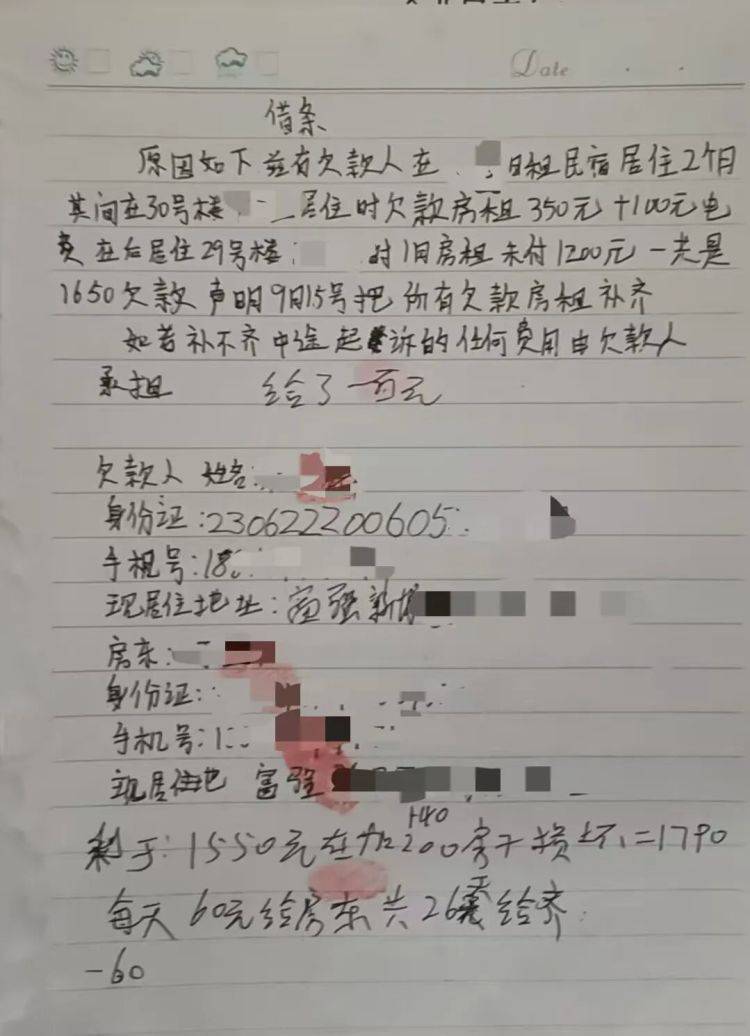 Date
借条
原因如下 兹有欠款人在 日租民宿居住2个月
其间在30号楼 居住时欠款房租350元+100元电
费 在后居住29号楼 时 1日房租未付1200元 一共是
1650欠款 声明9日15号把所有欠款房租补齐
如若补不齐中途起诉的任何费用由欠款人
承担 给了一百元
欠款人 姓名:
身份证:230622200605
手机号:18
现居住地址:富强新城
房东:
身份证:
手机号:1
现居住地 富强
+40
剩于:1550元在加200房干损坏=1790
每天60元给房东共26天给齐
-60